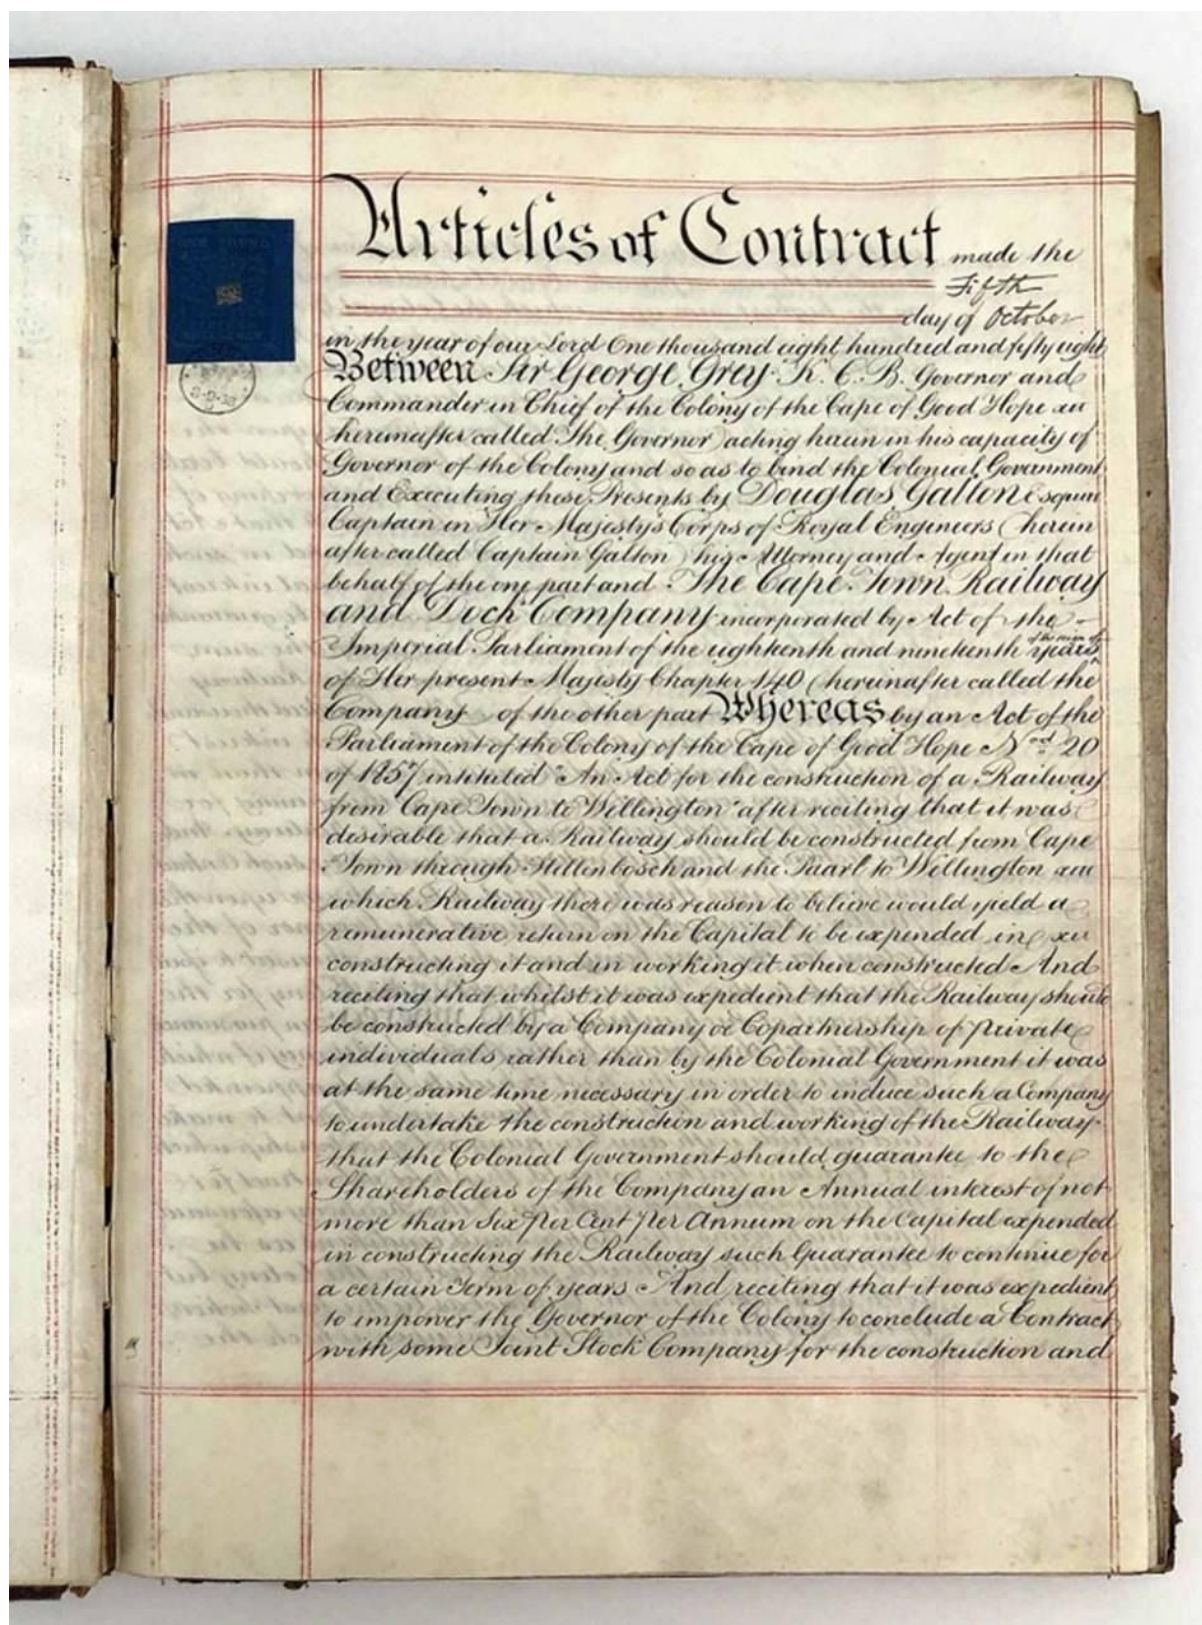 Articles of Contract made the
Fifth
day of October
in the year of our Lord One thousand eight hundred and fifty eight
Between Sir George Grey K. C. B. Governor and
Commander in Chief of the Colony of the Cape of Good Hope
hereinafter called The Governor) acting herein in his capacity of
Governor of the Colony and so as to bind the Colonial Government
and Executing these Presents by Douglas Galton Esquire
Captain in Her Majesty's Corps of Royal Engineers (herein
after called Captain Galton) his Attorney and Agent in that
behalf of the one part and The Cape Town Railway
and Dock Company incorporated by Act of the
Imperial Parliament of the eighteenth and nineteenth years
of Her present Majesty Chapter 140 (hereinafter called the
Company) of the other part Whereas by an Act of the
Parliament of the Colony of the Cape of Good Hope No. 20
of 1857 intituled "An Act for the construction of a Railway
from Cape Town to Wellington" after reciting that it was
desirable that a Railway should be constructed from Cape
Town through Stellenbosch and the Paarl to Wellington
which Railway there was reason to believe would yield a
remunerative return on the Capital to be expended in
constructing it and in working it when constructed And
reciting that whilst it was expedient that the Railway should
be constructed by a Company or Copartnership of private
individuals rather than by the Colonial Government it was
at the same time necessary in order to induce such a Company
to undertake the construction and working of the Railway
that the Colonial Government should guarantee to the
Shareholders of the Company an Annual interest of not
more than Six per Cent per Annum on the Capital expended
in constructing the Railway such Guarantee to continue for
a certain Term of years And reciting that it was expedient
to impower the Governor of the Colony to conclude a Contract
with some Joint Stock Company for the construction and